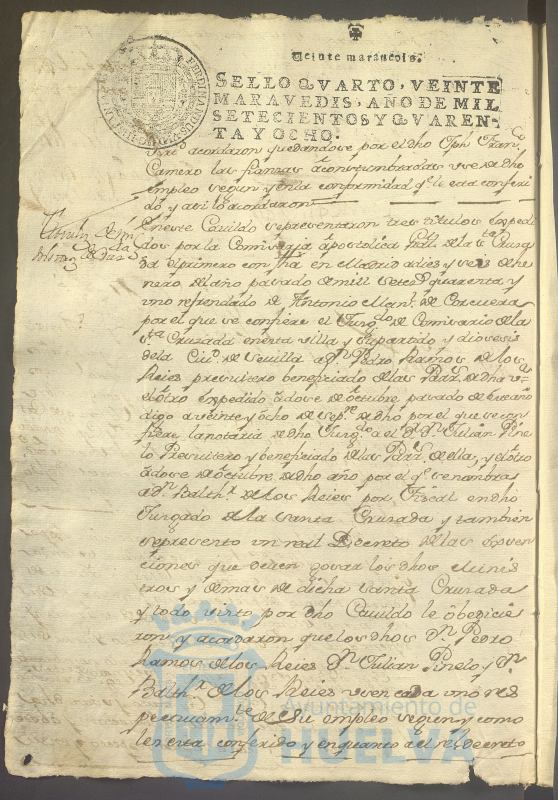 Veinte maravedis.
SELLO QVARTO, VEINTE
MARAVEDIS, AÑO DE MIL
SETECIENTOS Y QVAREN-
TA Y OCHO.
acordaron quedandose por el dho Jph Fran.co
Camero las fianzas acostumbradas use de dho
empleo segun y en la conformidad q.e le esta conferi
do y asi lo acordaron
En este Cavildo se presentaron tres titulos expedi
dos por la Comisaria Apostolica Gral. de la S.ta Cruza
da el primero con fha en Madrid a dies y seis de he
nero del año pasado de mill setec.s quarenta y
uno refrendado de Antonio Man.l de Corcuera
por el que se confiere el Juzg.do de Comisario de la
s.ta Cruzada en esta villa y su partido y diocesis
de la Ciu.d de Sevilla a D.n Pedro Ramos de los
Reies presvitero beneficiado de las Parr.s de dha v.a
el otro expedido a dose de octubre pasado de este año
digo a veinte y ocho de sep.re de dho por el que se con
fiere la notaria de dho Juzg.do a el D.r D.n Julian Pine
lo Presvitero y beneficiado de las Parr.s de ella, y el otro
a dose de octubre de dho año por el q.e se nombra
a D.n Balth.r de los Reies por Fiscal en dho
Juzgado de la Santa Cruzada y tambien
se presento un real Decreto de las esen
ciones que deven gosar los dhos minis
tros y demas de dicha santa Cruzada
y todo visto por dho Cavildo le obedecie
ron y acordaron que los dhos D.n Pedro
Ramos de los Reies D.n Julian Pinelo y D.n
Balth.r de los Reies usen cada uno res
pectivam.te de su empleo segun y como
les esta conferido y en quanto a el R.l Decreto
Ayuntamiento de
HUELVA